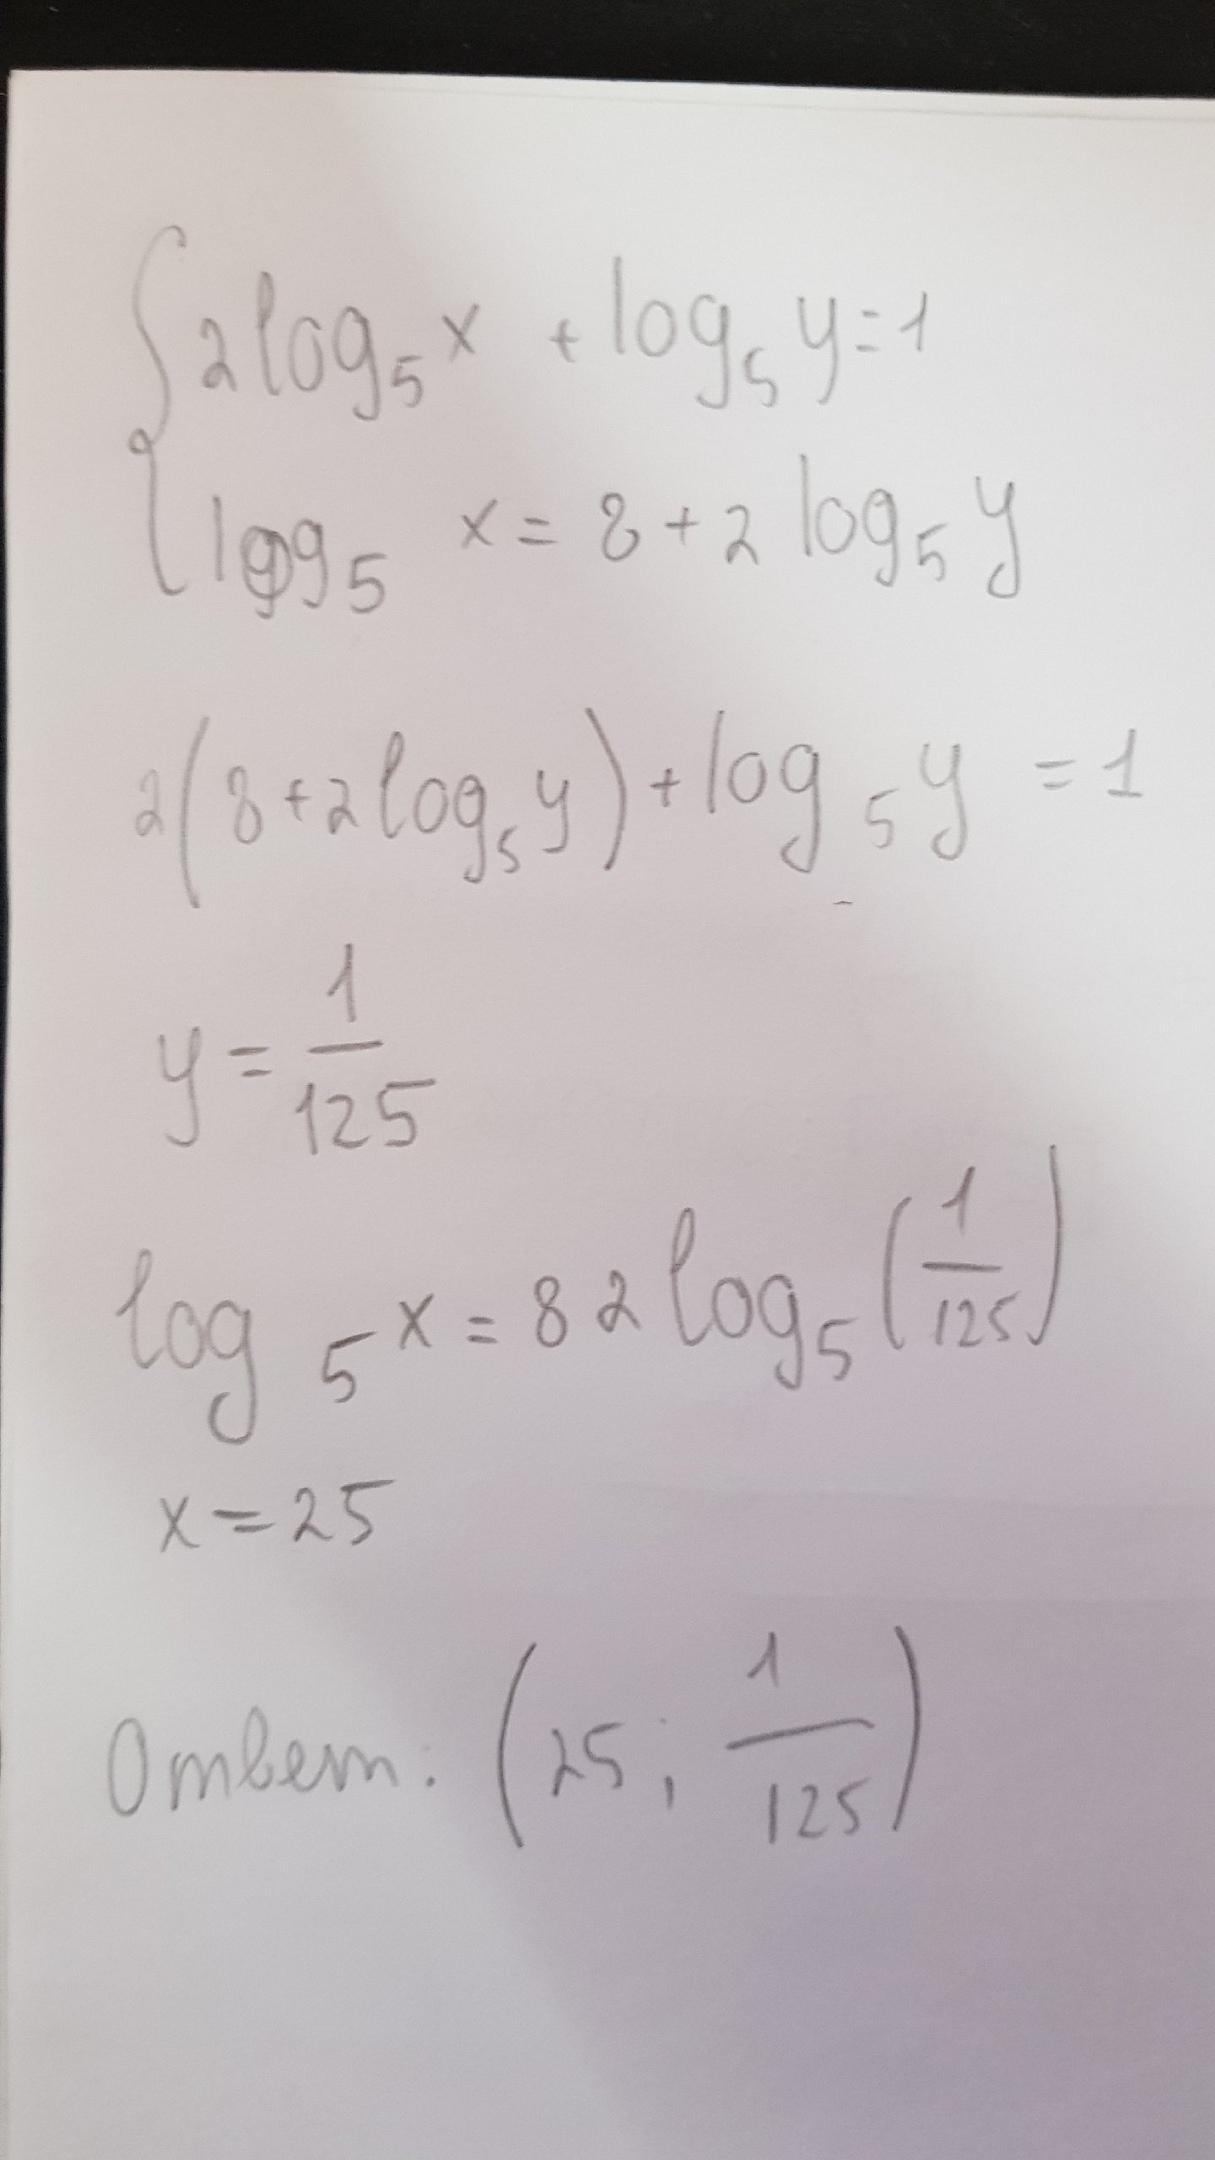 { 2 log₅ x + log₅ y = 1
log₅ x = 8 + 2 log₅ y
2(8 + 2 log₅ y) + log₅ y = 1
y = 1/125
log₅ x = 8 2 log₅ (1/125)
x = 25
Ответ: (25; 1/125)